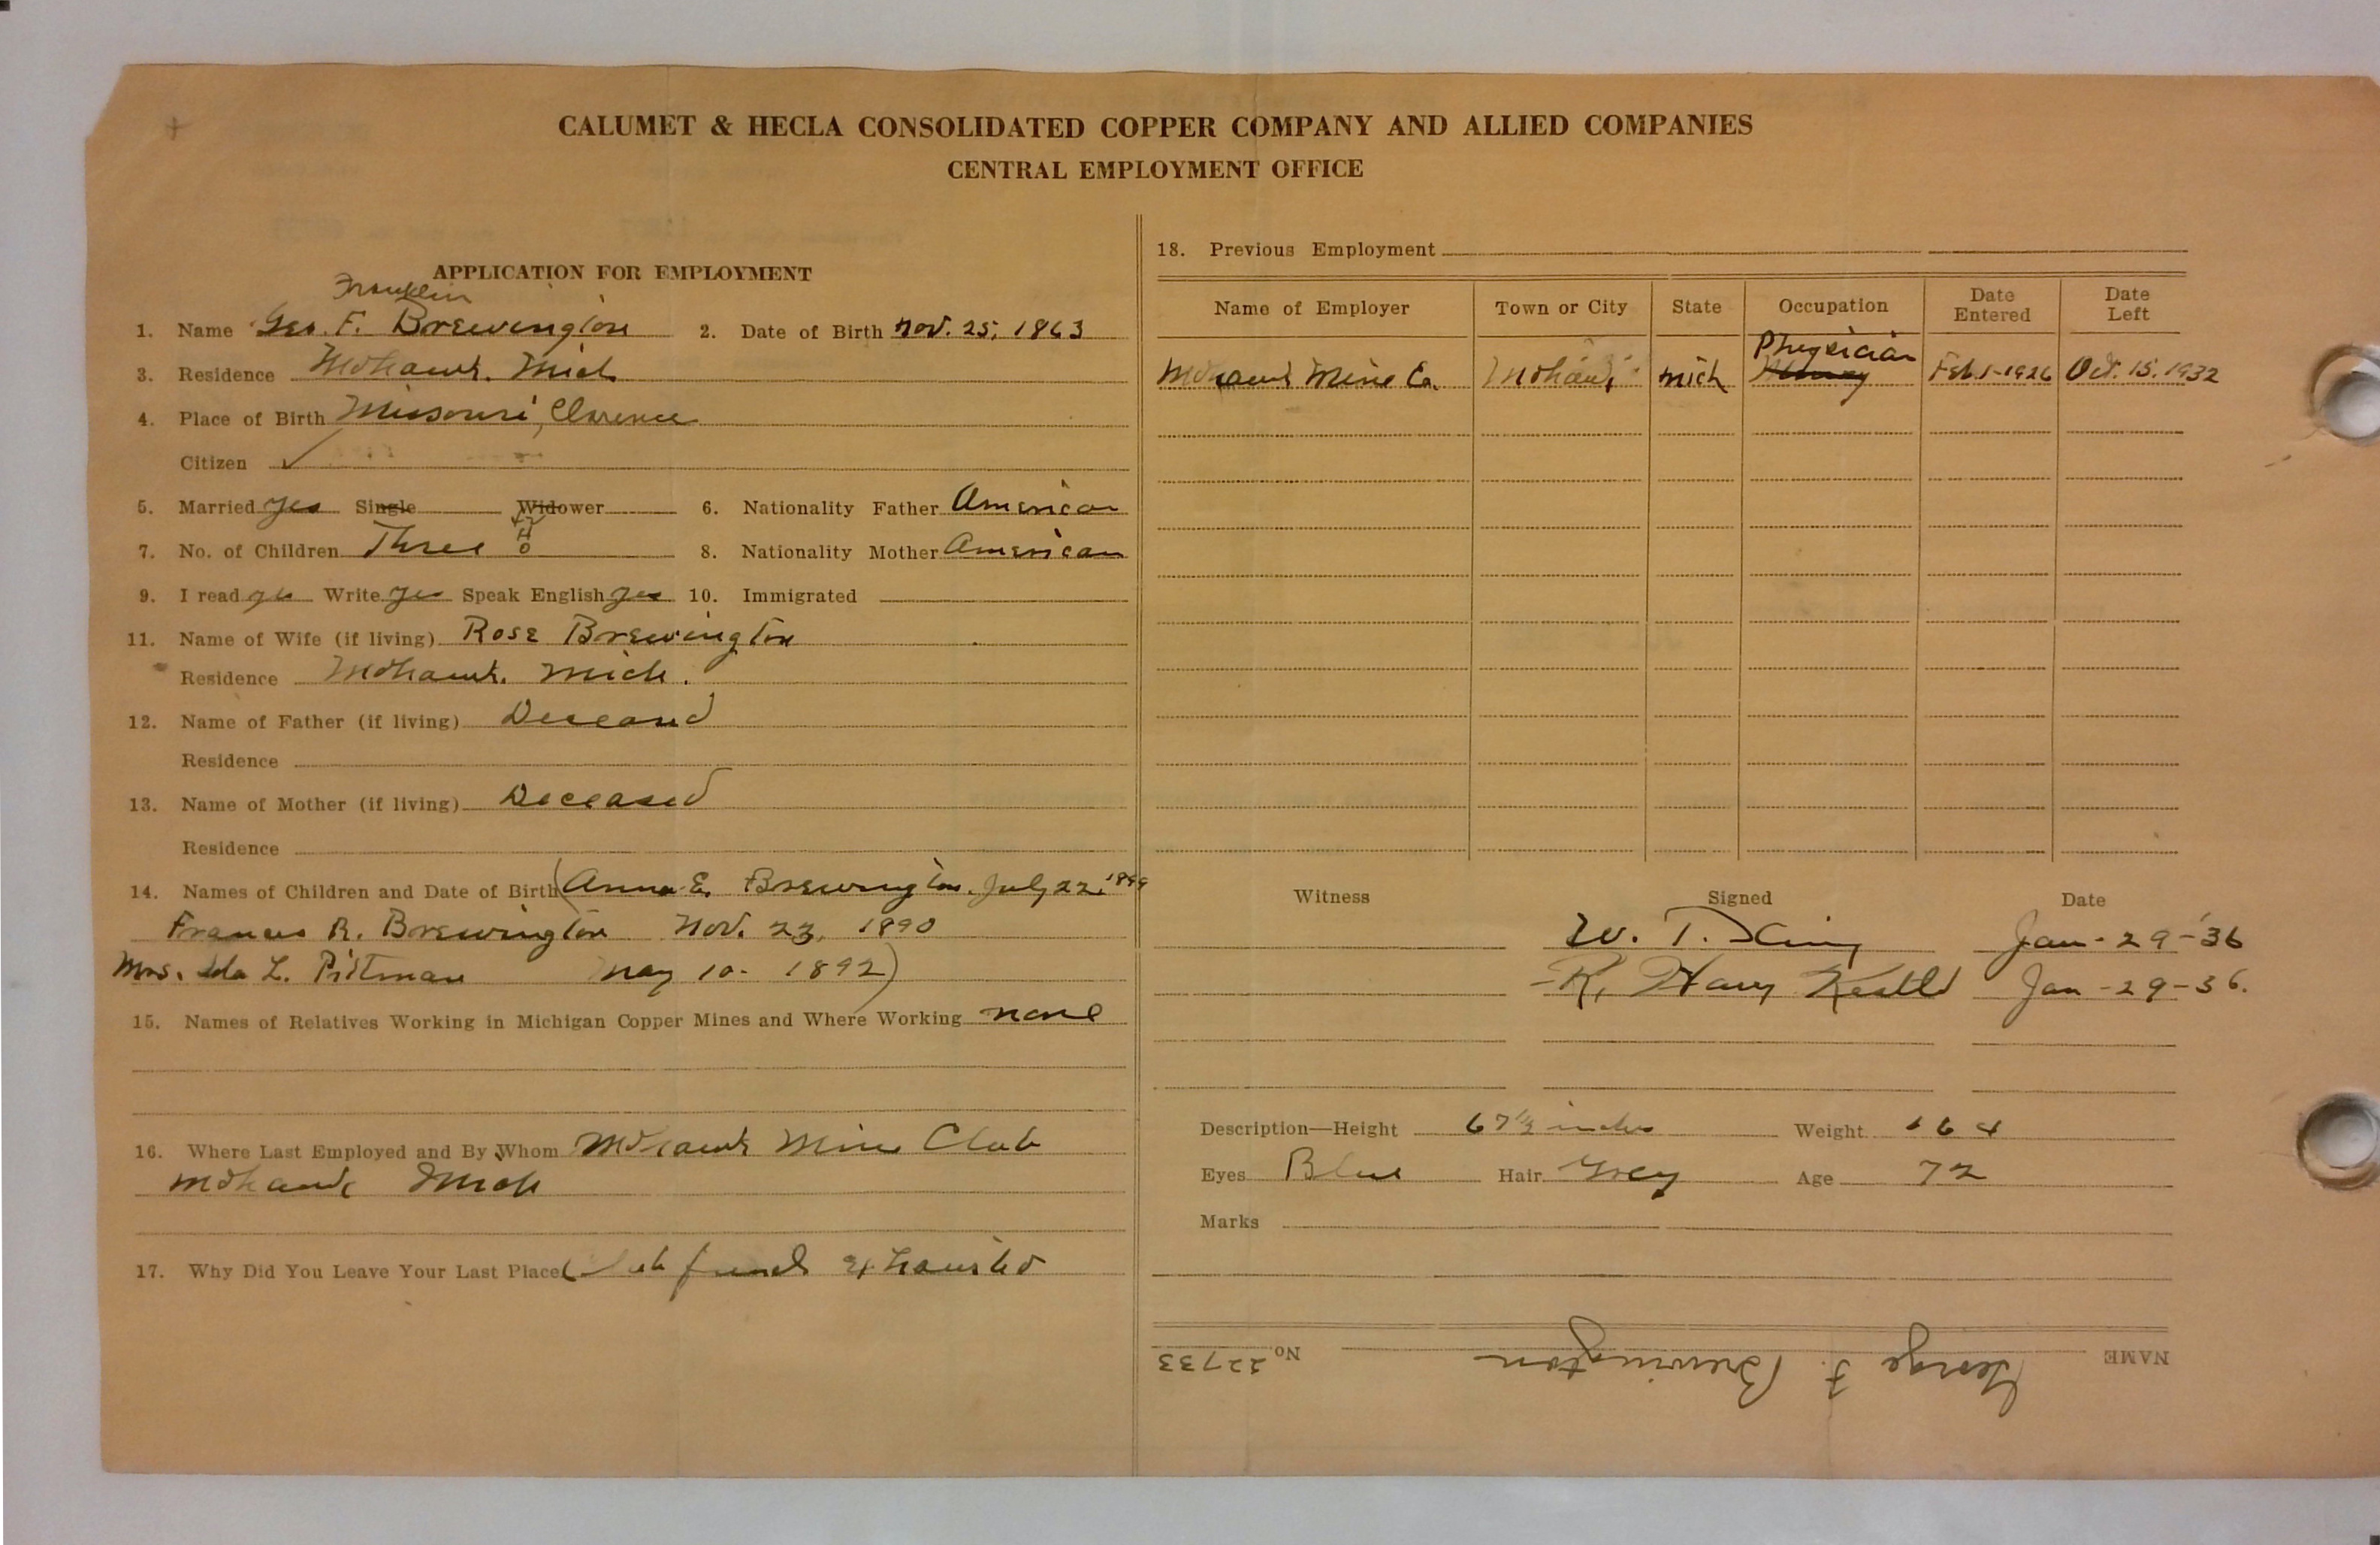 CALUMET & HECLA CONSOLIDATED COPPER COMPANY AND ALLIED COMPANIES
CENTRAL EMPLOYMENT OFFICE
APPLICATION FOR EMPLOYMENT
Franklin
1. Name Geo. F. Brewington 2. Date of Birth Nov. 25, 1863
3. Residence Mohawk. Mich
4. Place of Birth Missouri, Clarence
Citizen ✓
5. Married yes Single Widower 6. Nationality Father American
7. No. of Children Three 8. Nationality Mother American
9. I read yes Write yes Speak English yes 10. Immigrated
11. Name of Wife (if living) Rose Brewington
Residence Mohawk. Mich.
12. Name of Father (if living) Deceased
Residence
13. Name of Mother (if living) Deceased
Residence
14. Names of Children and Date of Birth (Anna E. Brewington. July 22, 1899
Frances R. Brewington Nov. 23, 1890
Mrs. Ida L. Pittman May 10 - 1892)
15. Names of Relatives Working in Michigan Copper Mines and Where Working none
16. Where Last Employed and By Whom Mohawk Mine Club
Mohawk Mich
17. Why Did You Leave Your Last Place Club funds exhausted
18. Previous Employment
Name of Employer Town or City State Occupation Date Entered Date Left
Physician
Mohawk Mine Co. Mohawk Mich Feb. 1-1926 Oct. 15. 1932
Witness Signed Date
W. T. King Jan - 29 - 36
R. Harry Jan - 29 - 36.
Description—Height 67 1/2 inches Weight 164
Eyes Blue Hair Grey Age 72
Marks
NAME George F. Brewington No. 22733